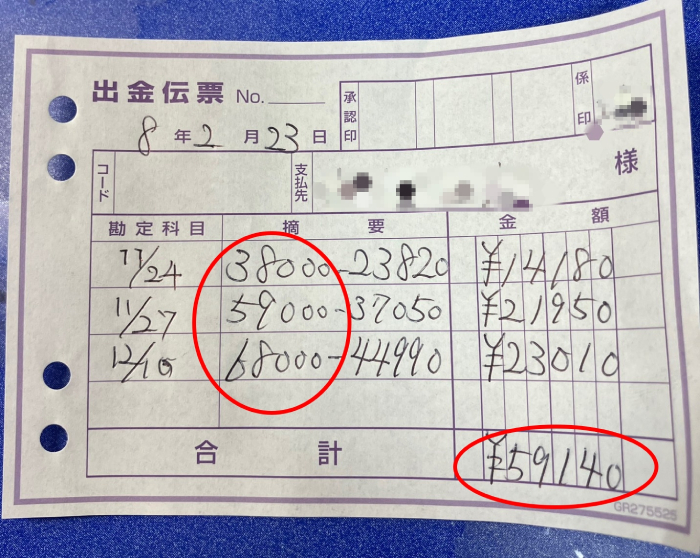 出金伝票 No.
承認印 係印
8年2月23日
コード 支払先 様
勘定科目 摘要 金額
11/24 38000-23820 ¥14180
11/27 59000-37050 ¥21950
12/10 68000-44990 ¥23010
合計 ¥59140
GR275525